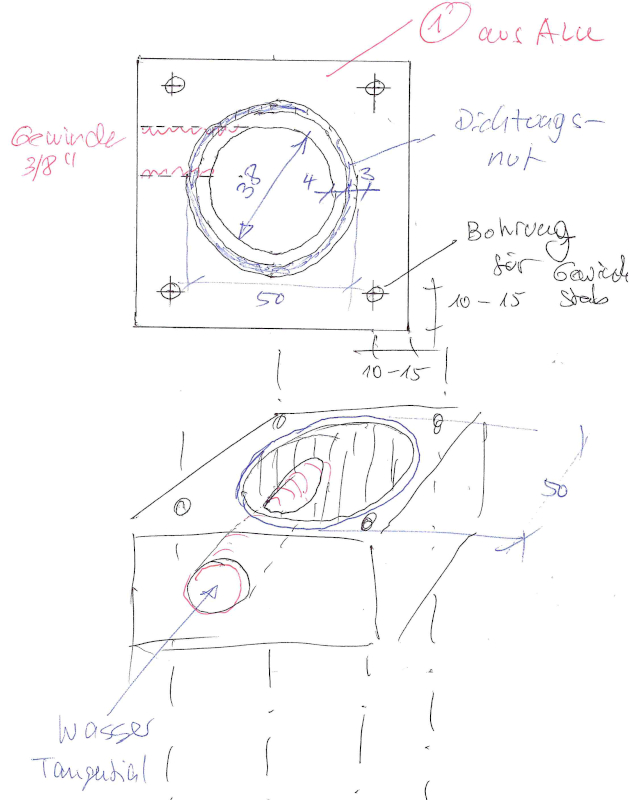 1 aus Alu
Gewinde
3/8"
Dichtungs-
nut
38
4
3
50
Bohrung
für Gewinde
stab
10-15
10-15
50
Wasser
Tangential